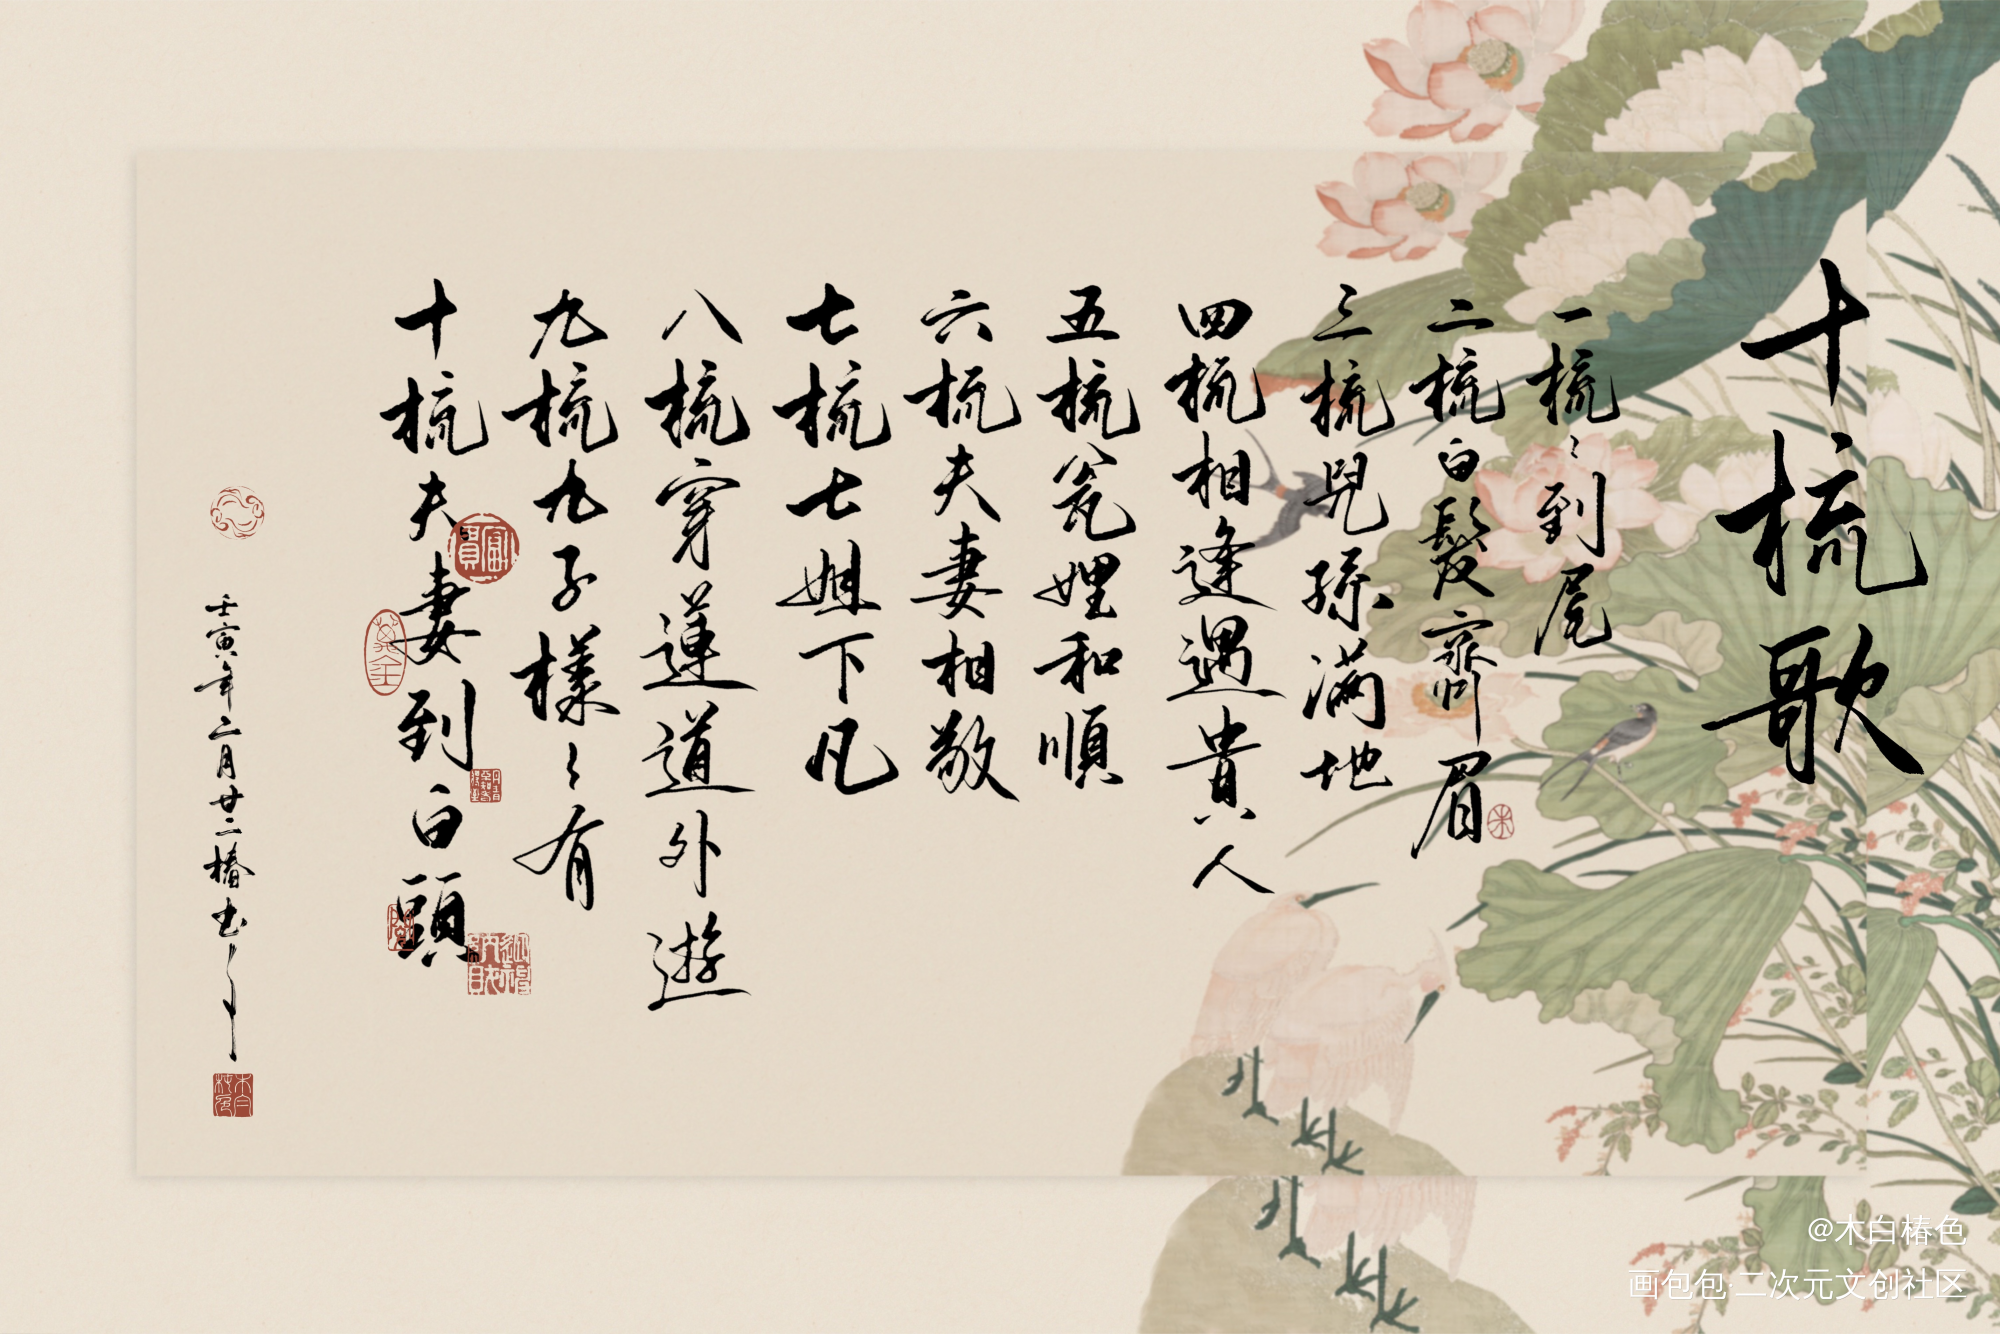 十梳歌
一梳〻到尾
二梳白髮齊眉
三梳兒孫滿地
四梳相逢遇貴人
五梳瓮娌和順
六梳夫妻相敬
七梳七姐下凡
八梳穿蓮道外遊
九梳九子樣〻有
十梳夫妻到白頭
壬寅年二月廿二椿书
富貴
朱
迎福納財
@木白椿色
画包包·二次元文创社区